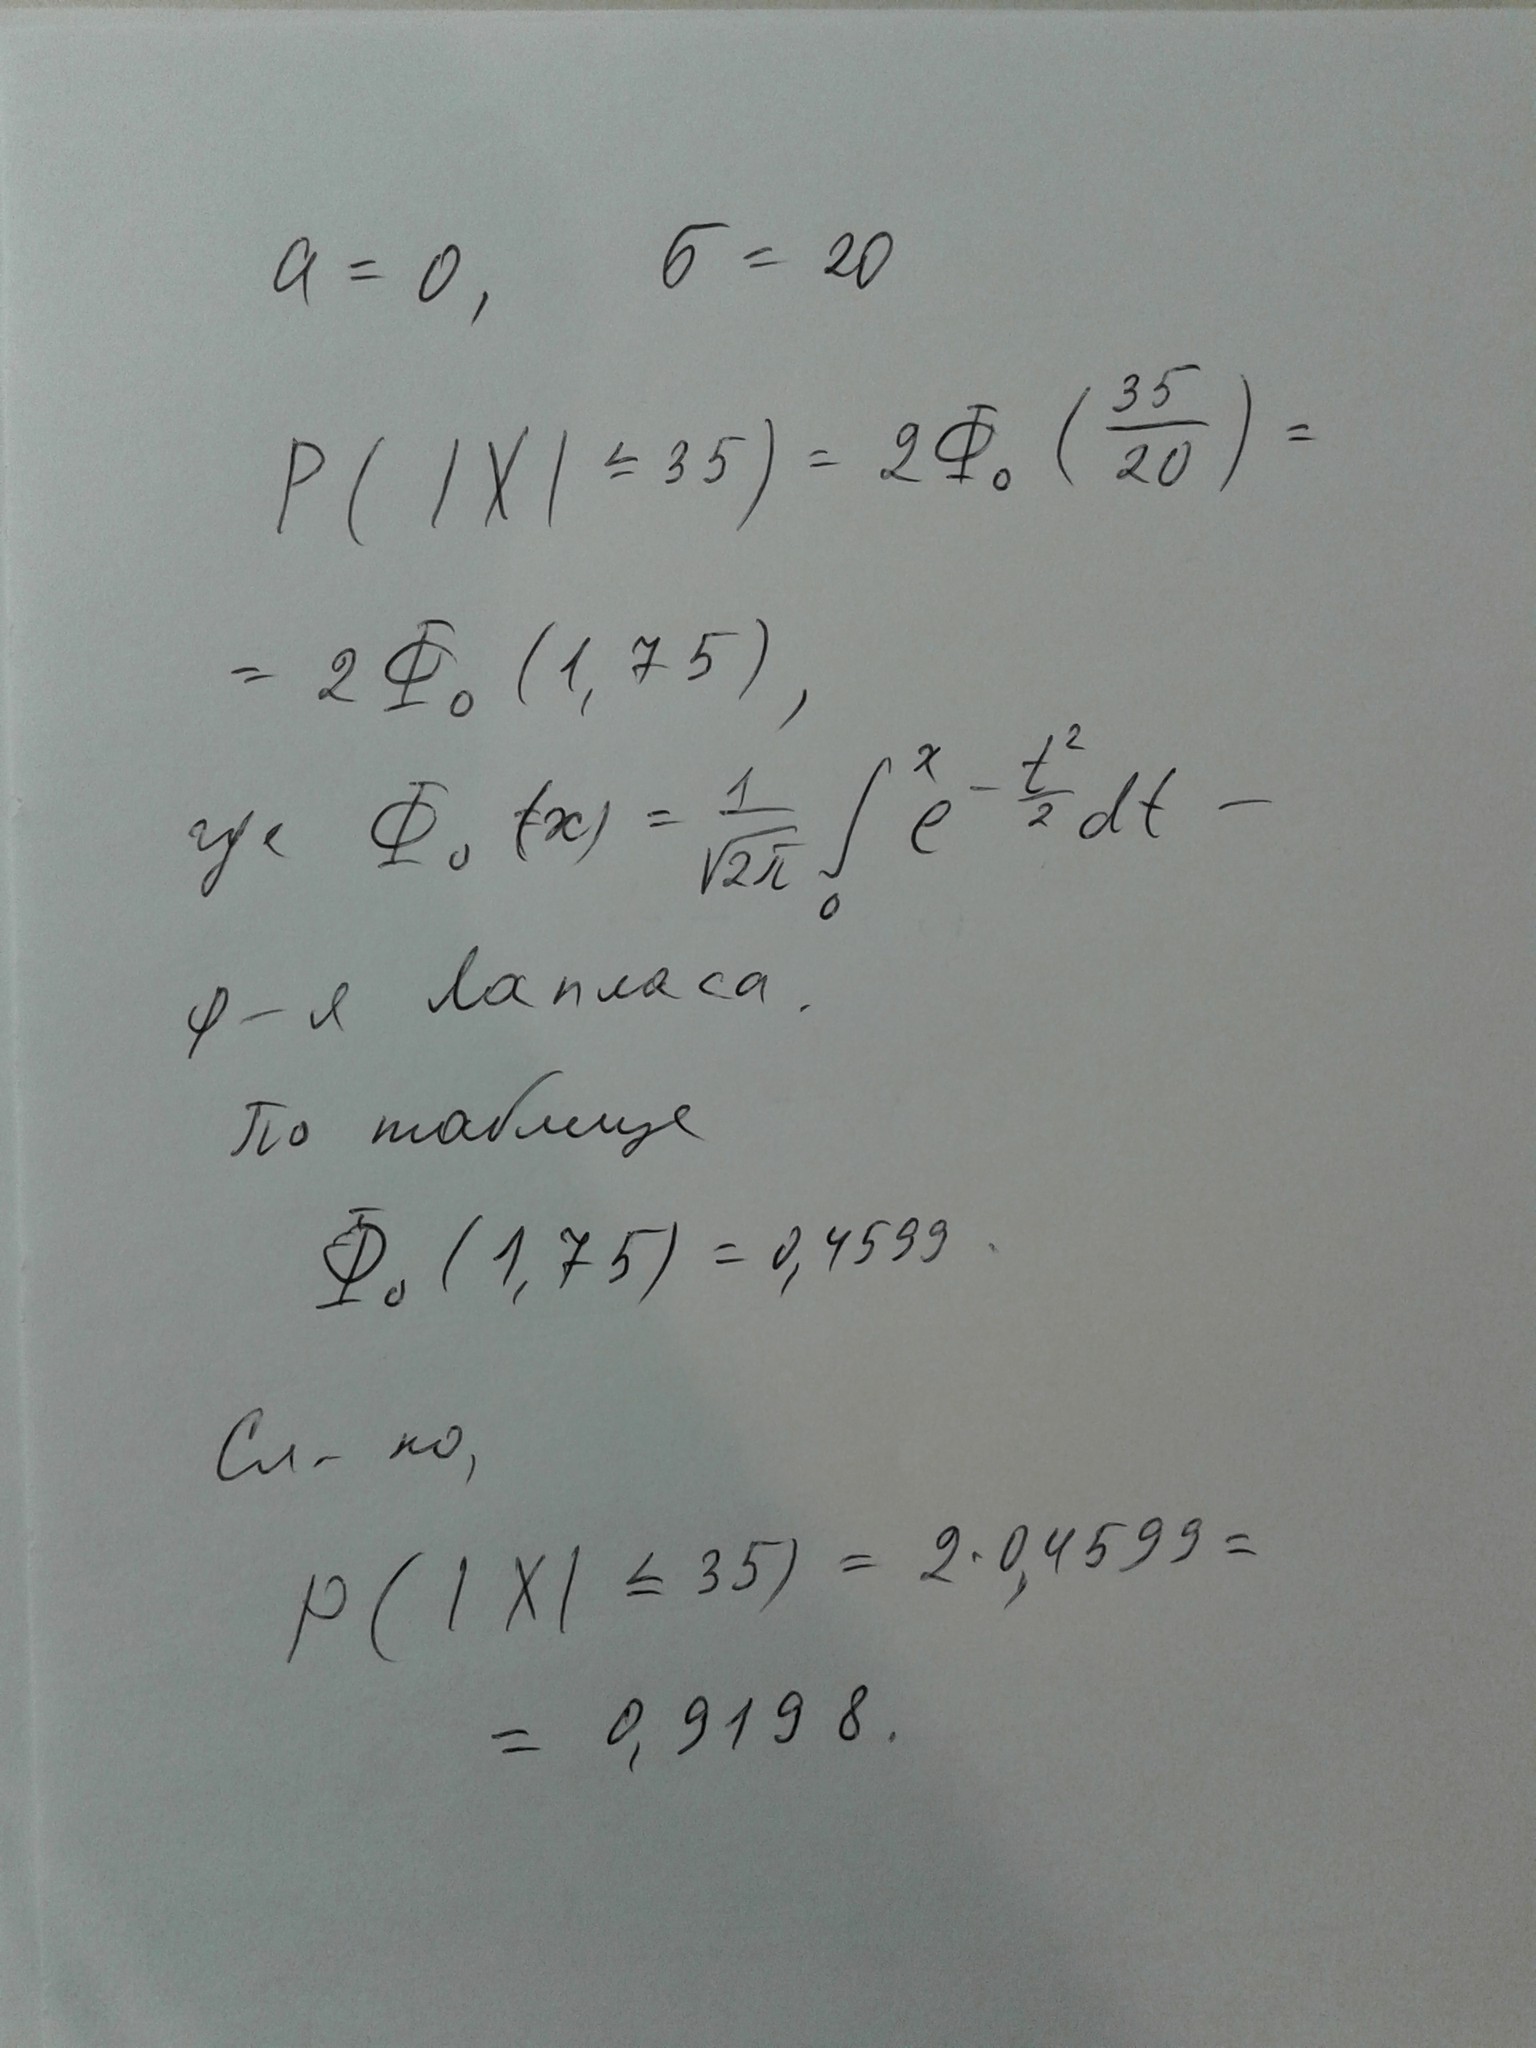 a = 0, σ = 20
P(|X| ≤ 35) = 2Φ₀(35/20) =
= 2Φ₀(1,75),
где Φ₀(x) = 1/√2π ∫₀ˣ e^(-t²/2) dt –
ф-я Лапласа.
По таблице
Φ₀(1,75) = 0,4599.
Сл-но,
P(|X| ≤ 35) = 2·0,4599 =
= 0,9198.